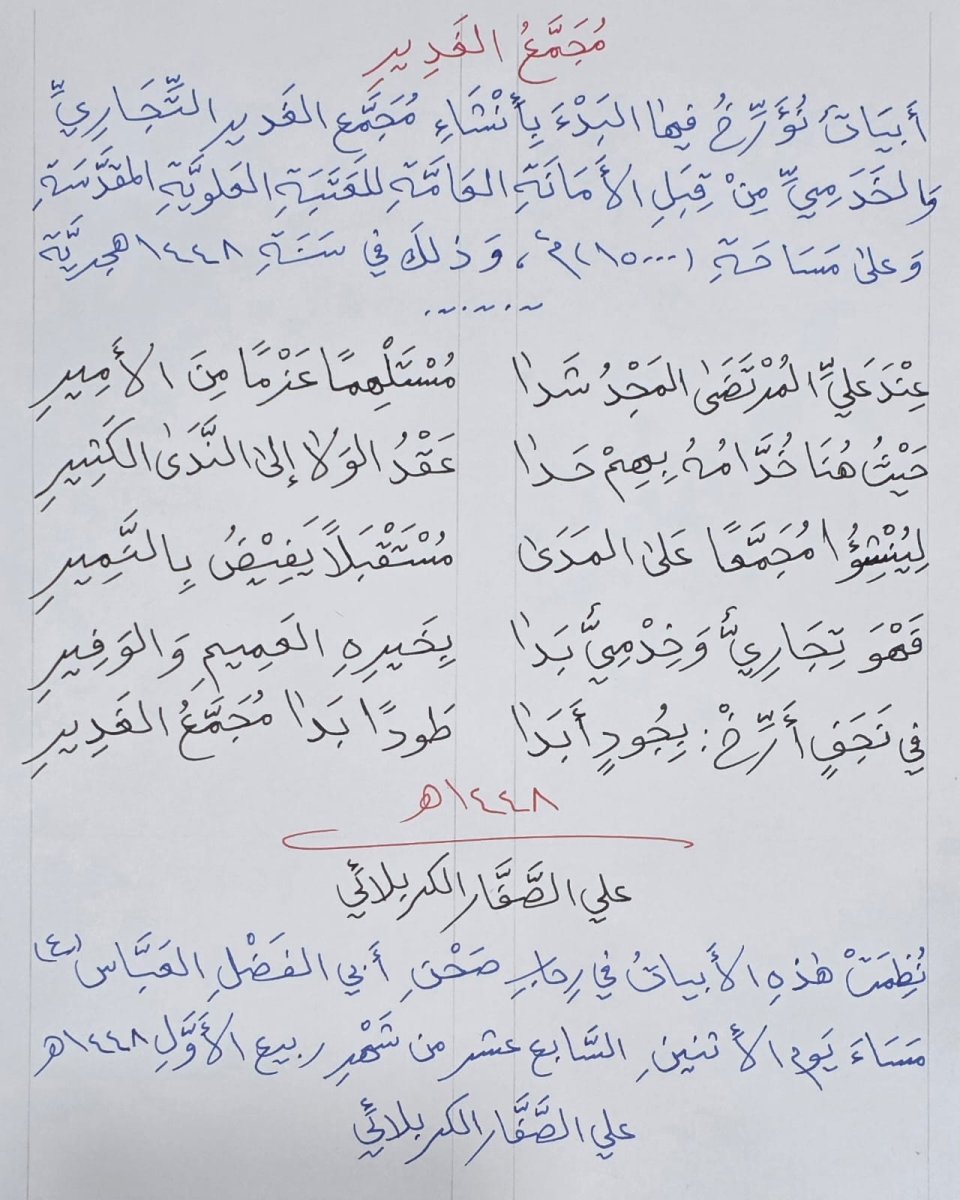 مُجَمَّعُ الغَدِيرِ
أَبيَاتٌ نُؤَرِّخُ فيها البَدْءَ بِأنْشَاءِ مُجَمَّعِ الغَديرِ التِّجَارِيِّ
وَالخَدَمِيِّ مِنْ قِبَلِ الأَمَانَةِ العَامَّةِ للعَتَبَةِ العَلَويَّةِ المقَدَّسَةِ
وَعلى مَسَاحَةِ (١٥٠٠٠٠)م٢، وَذلكَ في سَنَةِ ١٤٤٨هجريَّة
عِنْدَ عَليٍّ المُرْتَضَى المَجْدُ شَدا مُسْتَلْهِمًا عَزْمًا مِنَ الأَمِيرِ
حَيْثُ هُنَا خُدَّامُهُ بِهِمْ حَدا عَقْدُ الوَلا إلى النَّدَى الكَثِيرِ
لِيُنْشِؤُا مُجَمَّعًا عَلى المَدَى مُسْتَقْبَلًا يَفِيْضُ بِالنَّمِيرِ
فَهْوَ تِجَارِيٌّ وَخِدْمِيٌّ بَدا بِخَيرِهِ العَمِيمِ وَالوَفِيرِ
في نَجَفٍ أَرِّخْ: بِجُودٍ أَبَدا طَودًا بَدا مُجَمَّعُ الغَدِيرِ
١٤٤٨هـ
علي الصَّفَّار الكربلائي
نُظِمَتْ هٰذِهِ الأَبياتُ في رِحابِ صَحْنِ أَبي الفَضْلِ العَبَّاس (ع)
مَسَاءَ يَومِ الأثنينِ السَّابع عشر من شَهْرِ ربيع الأَوَّلِ ١٤٤٨هـ
علي الصَّفَّار الكربلائي